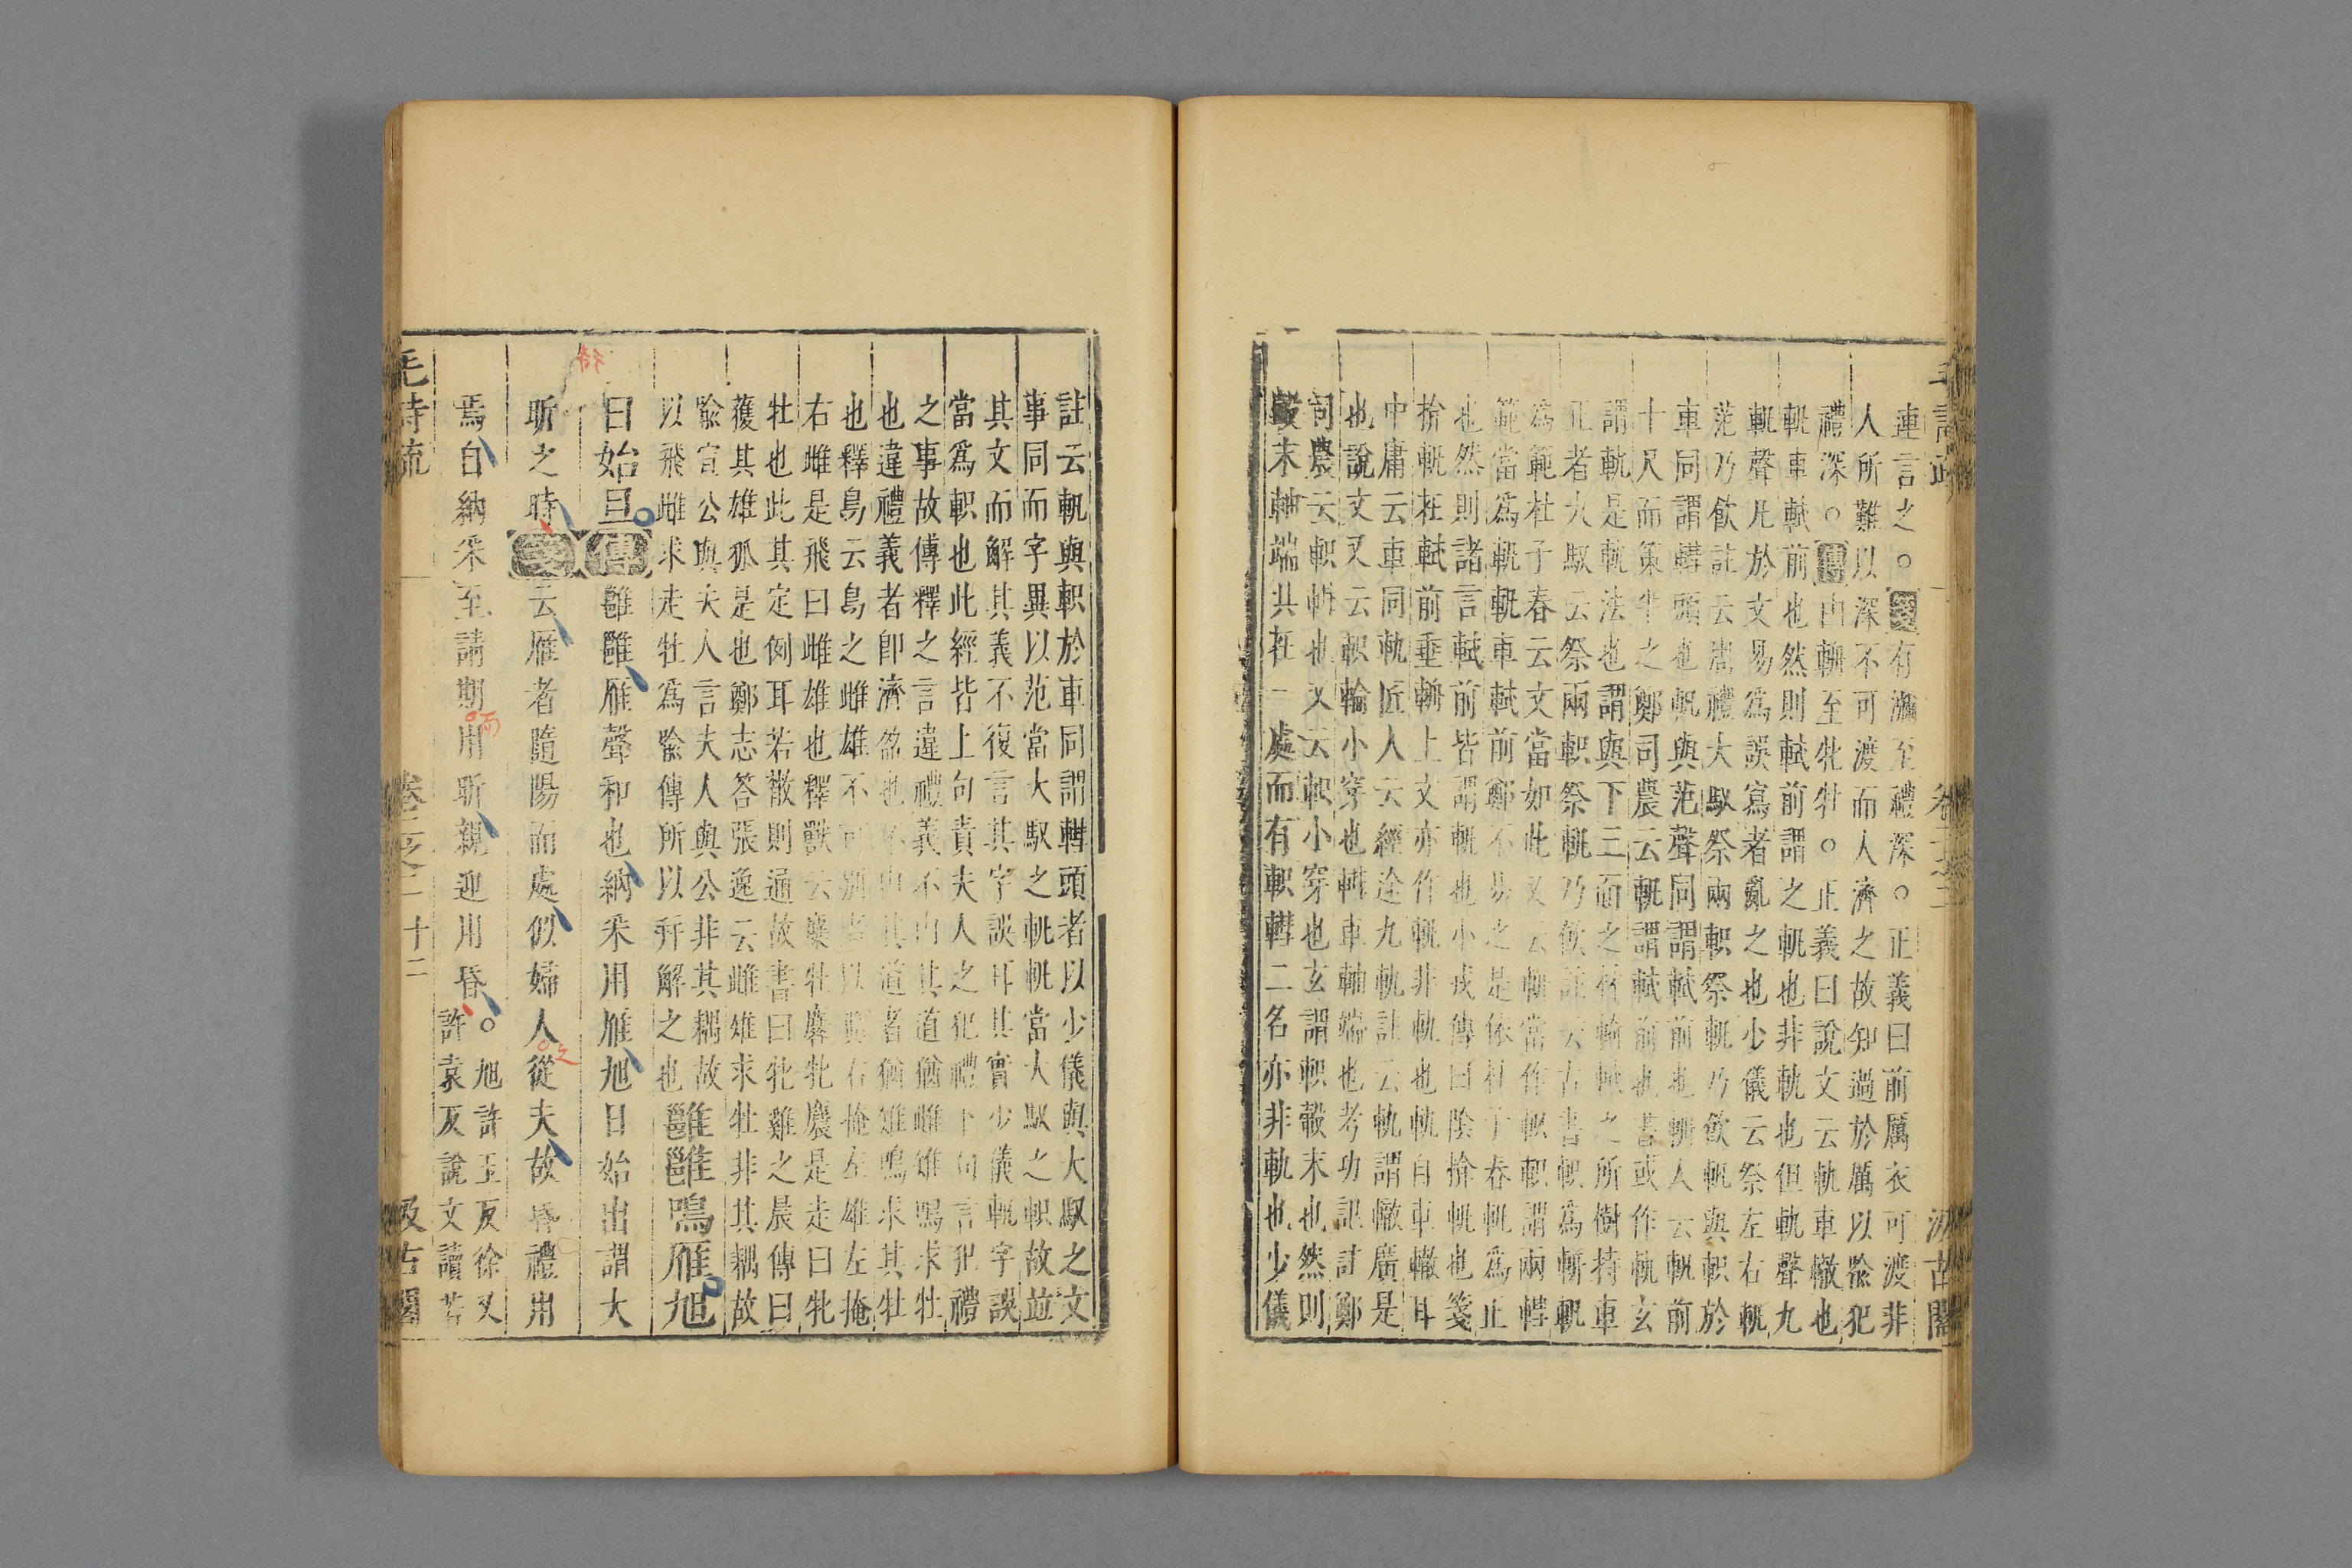 連言之○箋有瀰至禮深○正義曰前厲衣可渡非
人所難以深不可渡而人濟之故知過於厲以喻犯
禮深○傳由輈至牝牡○正義曰說文云軌車轍也
軓車軾前也然則軾前謂之軓也非軌也但軌聲九
軓聲凡於文易為誤寫者亂之也少儀云祭左右軌
范乃飲註云周禮大馭祭兩軹祭軓乃飲軓與軹於
車同謂轊頭也軓與范聲同謂軾前也輈人云軓前
十尺而策半之鄭司農云軓謂軾前也書或作軌玄
謂軌是軌法也謂輿下三面之材輢軾之所樹持車
正者大馭云祭兩軹祭軓乃飲註云古書軹為軓
為範杜子春云文當如此又云軓當作軹軹謂兩轊
範當為軓軓車軾前鄭不易之是依杜子春軓為正
也然則諸言軾前皆謂軓也小戎傳曰陰揜軓也箋
揜軓在軾前垂輈上文亦作軓非軌也軌自車轍耳
中庸云車同軌匠人云經途九軌註云軌謂轍廣是
也說文又云軹輪小穿也轊車軸端也考功記註鄭
司農云軹轊也又云軹小穿也玄謂軹轂末也然則
轂末軸端共在一處而有軹轊二名亦非軌也少儀
註云軌與軹於車同謂轊頭者以少儀與大馭之文
事同而字異以范當大馭之軓軌當大馭之軹故並
其文而解其義不復言其字誤耳其實少儀軌字誤
當為軹也此經皆上句責夫人之犯禮下句言犯禮
之事故傳釋之言違禮義不由其道猶雌雉鳴求牡
也違禮義者即濟盈也不由其道者猶雉鳴求其牡
也釋鳥云鳥之雌雄不可別者以翼右掩左雄左掩
右雌是飛曰雌雄也釋獸云麋牡麔牝麎是走曰牝
牡也此其定例耳若散則通故書曰牝雞之晨傳曰
獲其雄狐是也鄭志答張逸云雌雉求牡非其耦故
喻宣公與夫人言夫人與公非其耦故
以飛雌求走牡為喻傳所以并解之也雝雝鳴雁旭
日始旦傳雝雝雁聲和也納采用雁旭日始出謂大
昕之時箋云雁者隨陽而處似婦人從夫故昏禮用
焉自納采至請期用昕親迎用昏○旭許玉反徐又
許袁反說文讀若
毛詩疏 卷二之二 十二 汲古閣